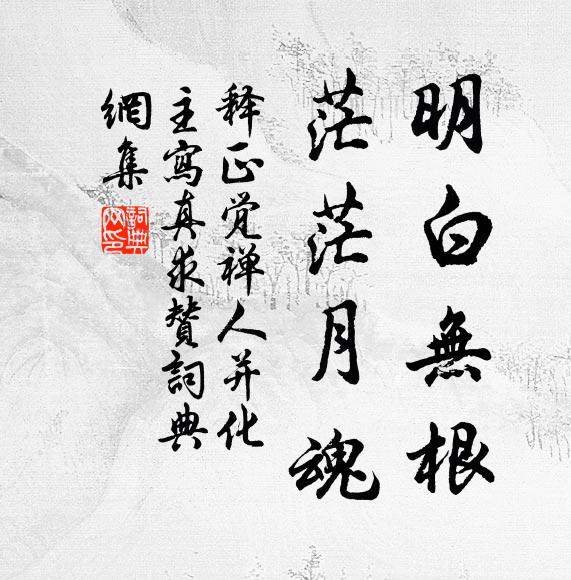 明白無根
茫茫月魂
释正觉禅人并化
主寫真求贊詞典
網集
詞典
网印